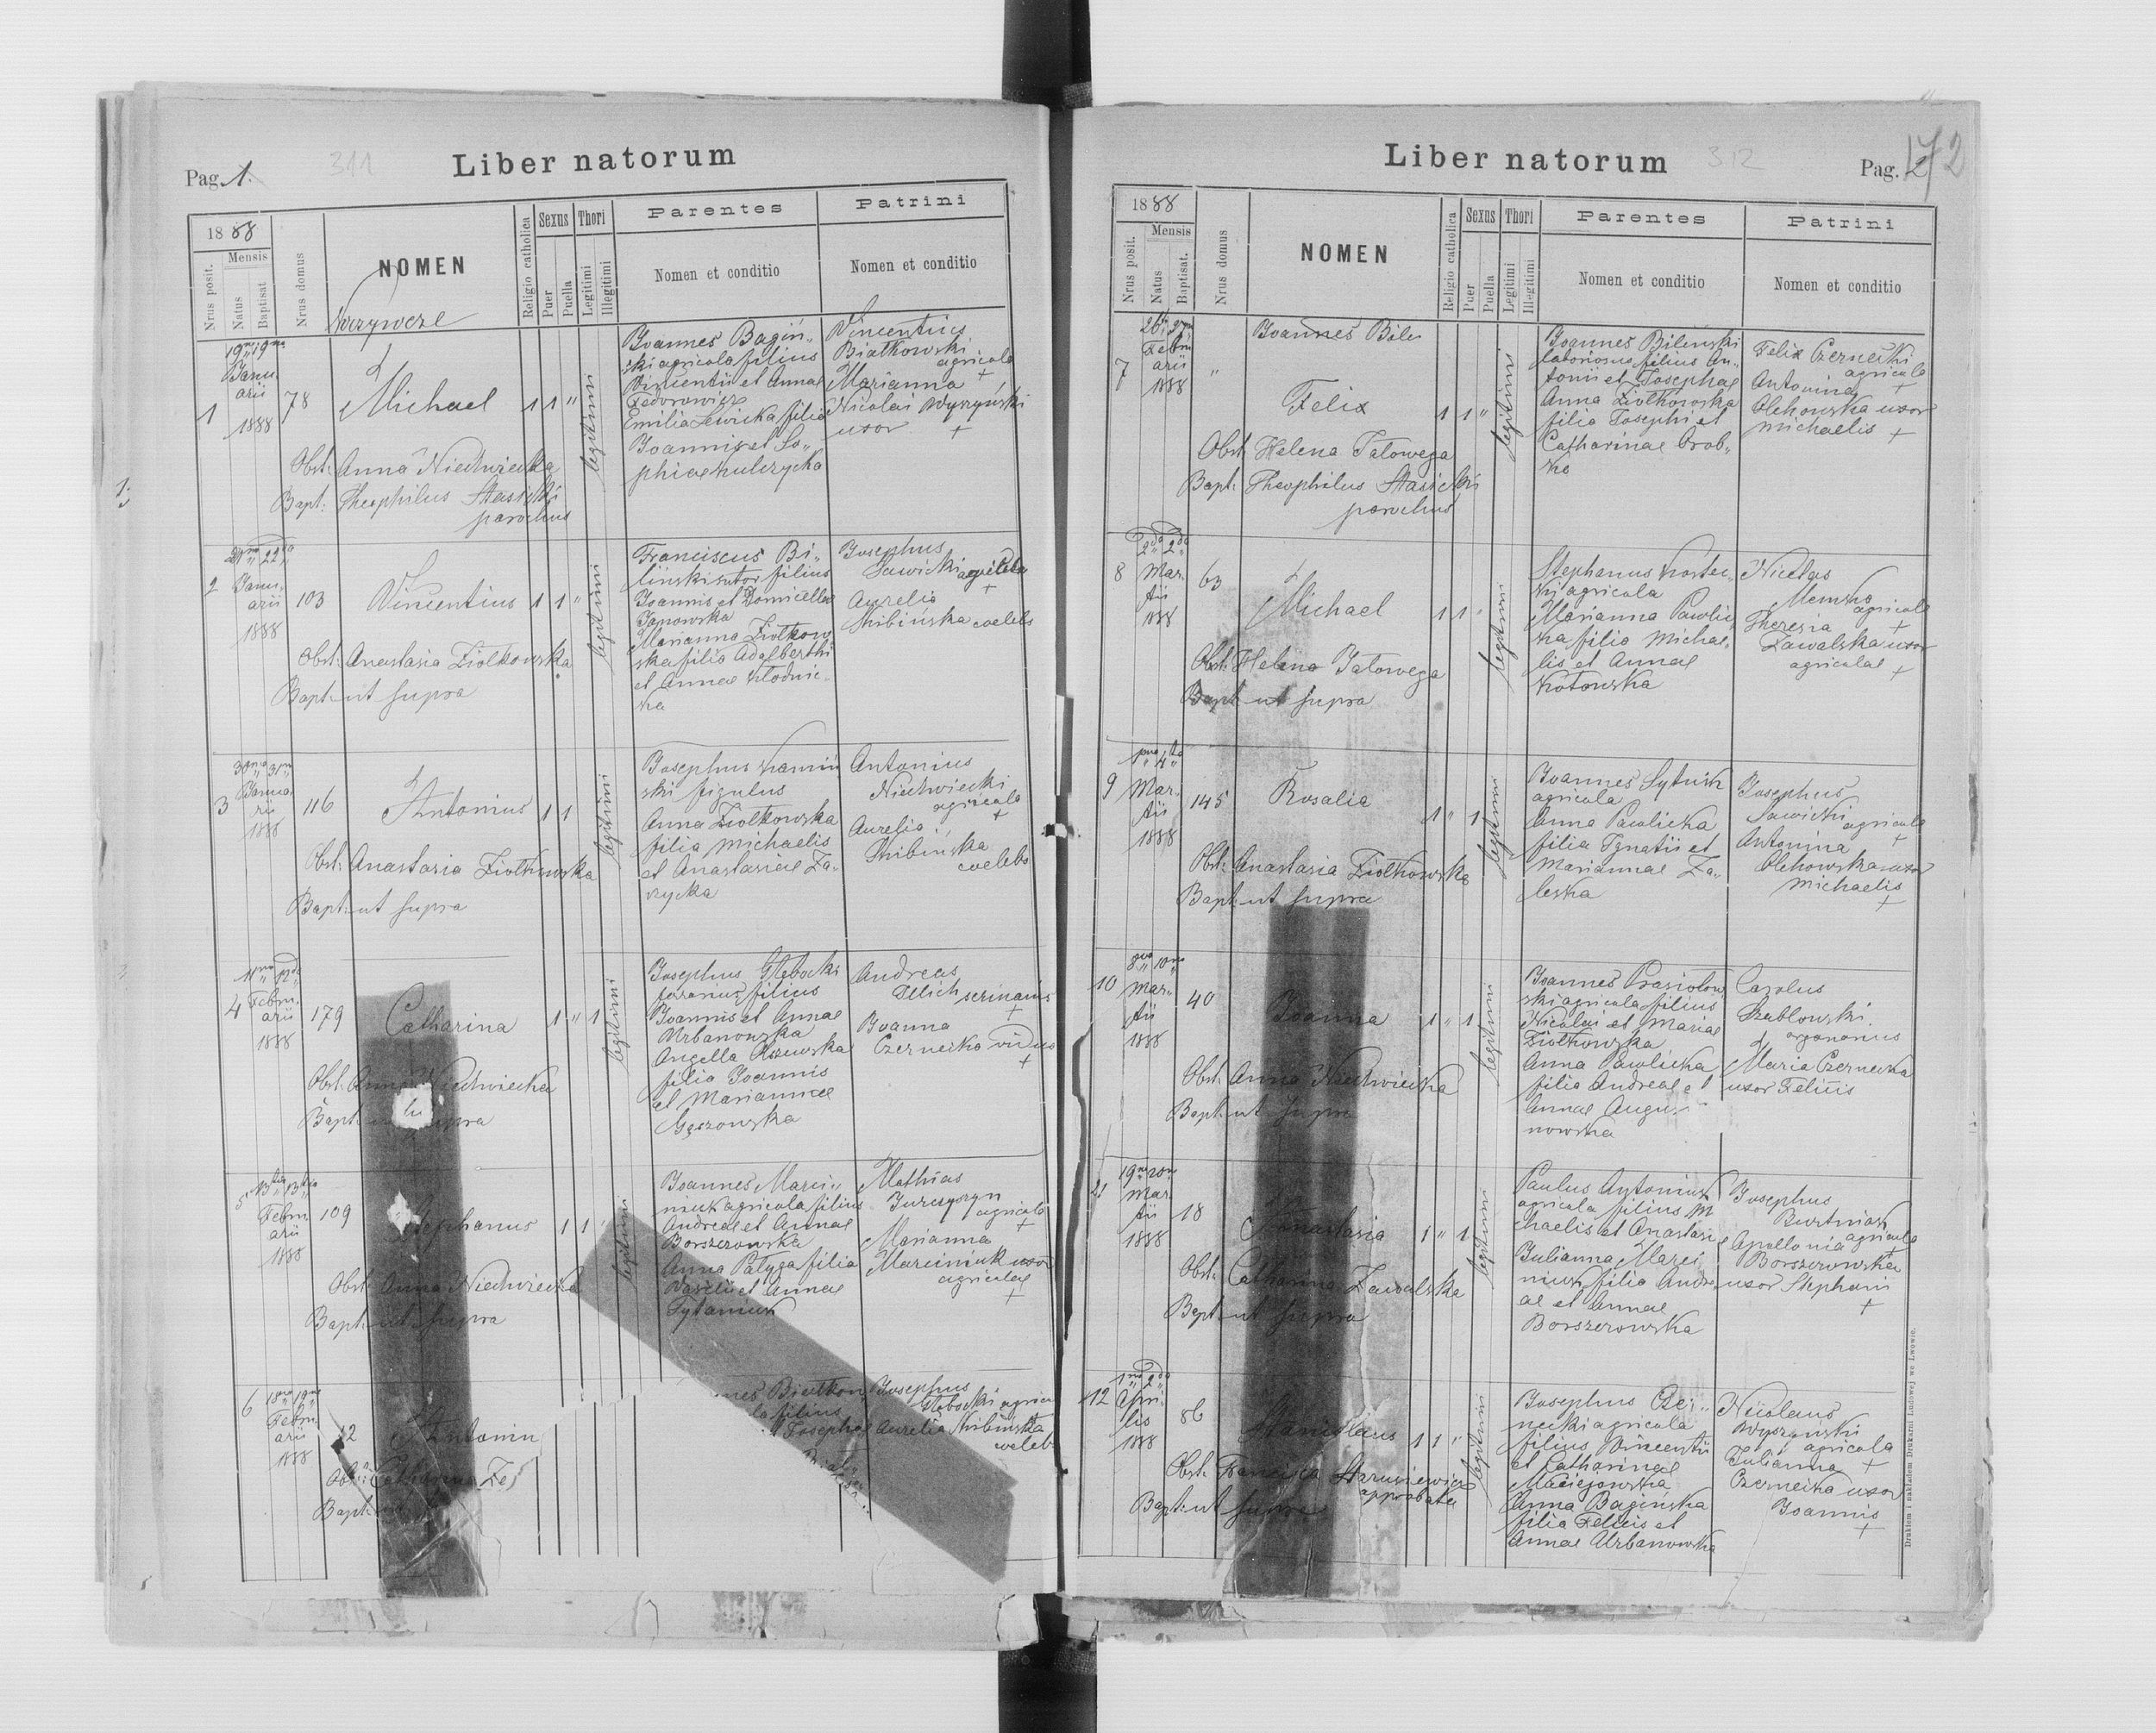 Pag. 1.
311
Liber natorum
1888
Mensis
Nrus posit.
Natus
Baptisat
Nrus domus
NOMEN
Religio catholica
Sexus
Puer
Puella
Thori
Legitimi
Illegitimi
Parentes
Nomen et conditio
Patrini
Nomen et conditio
1
19na 19na
Janu-
arii
1888
78
Michael
1 1 "
legitimi
Obst: Anna Niedwiecka
Bapt: Theophilus Stasicki
parochus
Joannes Bagiń-
ski agricola filius
Vincentii et Annae
Fedorowicz
Emilia Lewicka filia
Joannis et So-
phiae Kulczycka
Vincentius
Białkowski
agricola +
Marianna
Nicolai Wyszyński
uxor +
2
21ma 22da
Janu-
arii
1888
103
Vincentius
1 1 "
legitimi
Obst: Anastasia Ziołkowska
Bapt: ut supra
Franciscus Bi-
liński sutor filius
Joannis et Domicella
Janowska
Marianna Ziołkow
ska filia Adalberthi
et Annae Kłodnic-
ka
Josephus
Sawicki agricola
+
Aurelia
Skibińska coelebs
3
30ma 31ma
Janua-
rii
1888
116
Antonius
1 1
legitimi
Obst: Anastasia Ziołkowska
Bapt: ut supra
Josephus Kamiń
ski figulus
Anna Ziołkowska
filia Michaelis
et Anastasiae Za-
rzycka
Antonius
Niedwiecki
agricola
+
Aurelia
Skibińska
coelebs
4
11ma 12da
Febru-
arii
1888
179
Catharina
1 " 1
legitimi
Obst: Anna Niedwiecka
Bapt: ut supra
Josephus Głębocki
filius
Joannis et Annae
Urbanowska
Angella
filia Joannis
et Mariannae
Gęszowska
Andreas
+
Joanna
Czernecka vidua
+
5
13tia 13tia
Febru-
arii
1888
109
Stephanus
1 1 "
legitimi
Obst: Anna Niedwiecka
Bapt: ut supra
Joannes Marci-
niuk agricola filius
Andreae et Annae
Borszerowska
Anna Pałyga filia
Wasilii et Annae
Tytaniuk
Mathias
Jurczyszyn
agricola
+
Marianna
Marciniuk uxor
agricolae
+
6
18va 19na
Febru-
arii
1888
12
Antonin
Obst: Catharina Za
Bapt:
nes Białkow
la filius
Josepha
Josephus
Głębocki agrico
Aurelia Skibińska
coelebs
Liber natorum
312
Pag. 2
172
1888
Mensis
Nrus posit.
Natus
Baptisat.
Nrus domus
NOMEN
Religio catholica
Sexus
Puer
Puella
Thori
Legitimi
Illegitimi
Parentes
Nomen et conditio
Patrini
Nomen et conditio
7
26ta 27ma
Febru
arii
1888
"
Joannes Bilin
Felix
1 1 "
legitimi
Obst: Helena Tatowega
Bapt: Theophilus Stasicki
parochus
Joannes Biliński
laboriosus filius An-
tonii et Josephae
Anna Ziołkowska
filia Josephi et
Catharinae Grob-
ka
Felix Czernecki
agricola
+
Antonina
Olchowska uxor
Michaelis +
8
2da 2da
Mar-
tii
1888
63
Michael
1 1 "
legitimi
Obst: Helena Tatowega
Bapt: ut supra
Stephanus Kostec-
ki agricola
Marianna Pawlic
ka filia Michae-
lis et Annae
Kotowska
Nicolas
agricola
+
Theresia
Zawalska uxor
agricolae +
9
1ma 4ta
Mar-
tii
1888
145
Rosalia
1 " 1
legitimi
Obst: Anastasia Ziołkowska
Bapt: ut supra
Joannes Sytnik
agricola
Anna Pawlicka
filia Ignatii et
Mariannae Za-
leska
Josephus
Sawicki agricola
+
Antonina
Olchowska uxor
Michaelis
+
10
8va 10ma
Mar-
tii
1888
40
Joanna
1 " 1
legitimi
Obst: Anna Niedwiecka
Bapt: ut supra
Joannes Prasiołow
ski agricola filius
Nicolai et Mariae
Ziołkowska
Anna Pawlicka
filia Andreae et
Annae Augus-
nowska
Carolus
Szablowski
organarius
+
Maria Czernecka
uxor Felicis
11
19na 20ma
Mar-
tii
1888
18
Anastasia
1 " 1
legitimi
Obst: Catharina Zawalska
Bapt: ut supra
Paulus Antoniuk
agricola filius M
chaelis et Anastasiae
Julianna Marci
niuk filia Andre-
ae et Annae
Borszerowska
Josephus
Burtniak
agricola
Apollonia
Borszerowska
uxor Stephani
+
12
1ma 2da
Apri-
lis
1888
86
Stanislaus
1 1 "
legitimi
Obst: Francisca Staruszewicz
approbata
Bapt: ut supra
Josephus Czer-
necki agricola
filius Vincentii
et Catharinae
Maciejowska
Anna Bagińska
filia Felicis et
Annae Urbanowska
Nicolaus
Wyszynski
agricola
+
Julianna
Czernecka uxor
Joannis
+
Drukiem i nakładem Drukarni Ludowej we Lwowie.